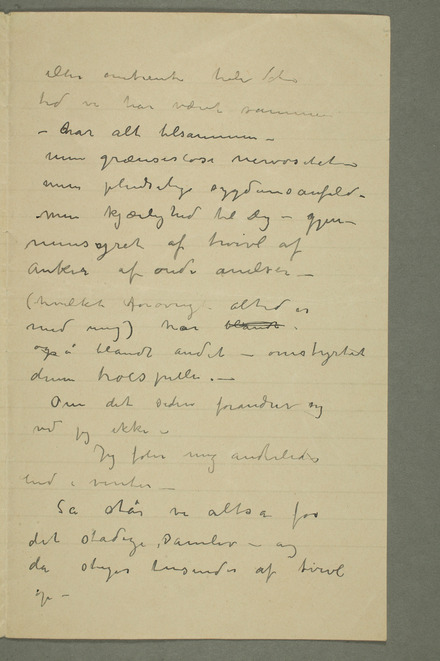 eller omtrent hele den
tid vi har været sammen
– har alt tilsammen –
min grænseløse nervøsitet –
min pludselige sygdomsanfald –
min kjærlighed til dig – gjen-
nemsyret af tvivl af
anker af onde anelser –
(hvilket forøvrigt altid er
med mig) har blandt.
også blandt andet – omstyrtet
denne
Om det siden forandrer sig
ved jeg ikke –
Jeg føler mig anderledes
end i vinter –
Så står vi altså for
det stadige samliv – og
da stiger tusinder af tvivl
op –